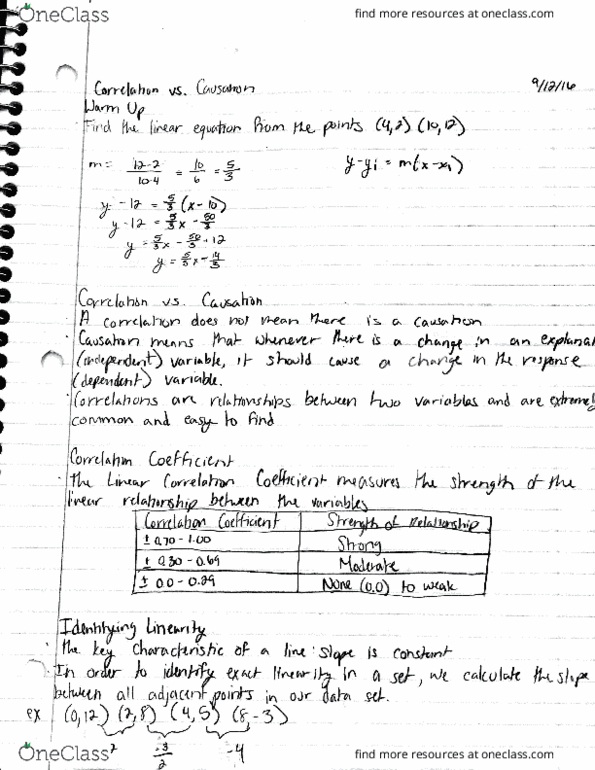 OneClass
find more resources at oneclass.com
Correlation vs. Causation 9/12/16
Warm Up
Find the linear equation from the points (4,2) (10,12)
m = 12-2/10-4 = 10/6 = 5/3
y-y1 = m(x-x1)
y - 12 = 5/3 (x - 10)
y - 12 = 5/3x - 50/3
y = 5/3x - 50/3 + 12
y = 5/3x - 14/3
Correlation vs. Causation
A correlation does not mean there is a causation
Causation means that whenever there is a change in an explana
(independent) variable, it should cause a change in the response
(dependent) variable.
Correlations are relationships between two variables and are extremel
common and easy to find
Correlation Coefficient
The Linear Correlation Coefficient measures the strength of the
linear relationship between the variables
Correlation Coefficient Strength of Relationship
± 0.70 - 1.00 Strong
± 0.30 - 0.69 Moderate
± 0.0 - 0.29 None (0.0) to weak
Identifying Linearity
The key characteristic of a line: slope is constant
In order to identify exact linearity in a set, we calculate the slope
between all adjacent points in our data set.
ex (0,12) (2,8) (4,5) (8,-3)
2 -3/2 -4
OneClass
find more resources at oneclass.com